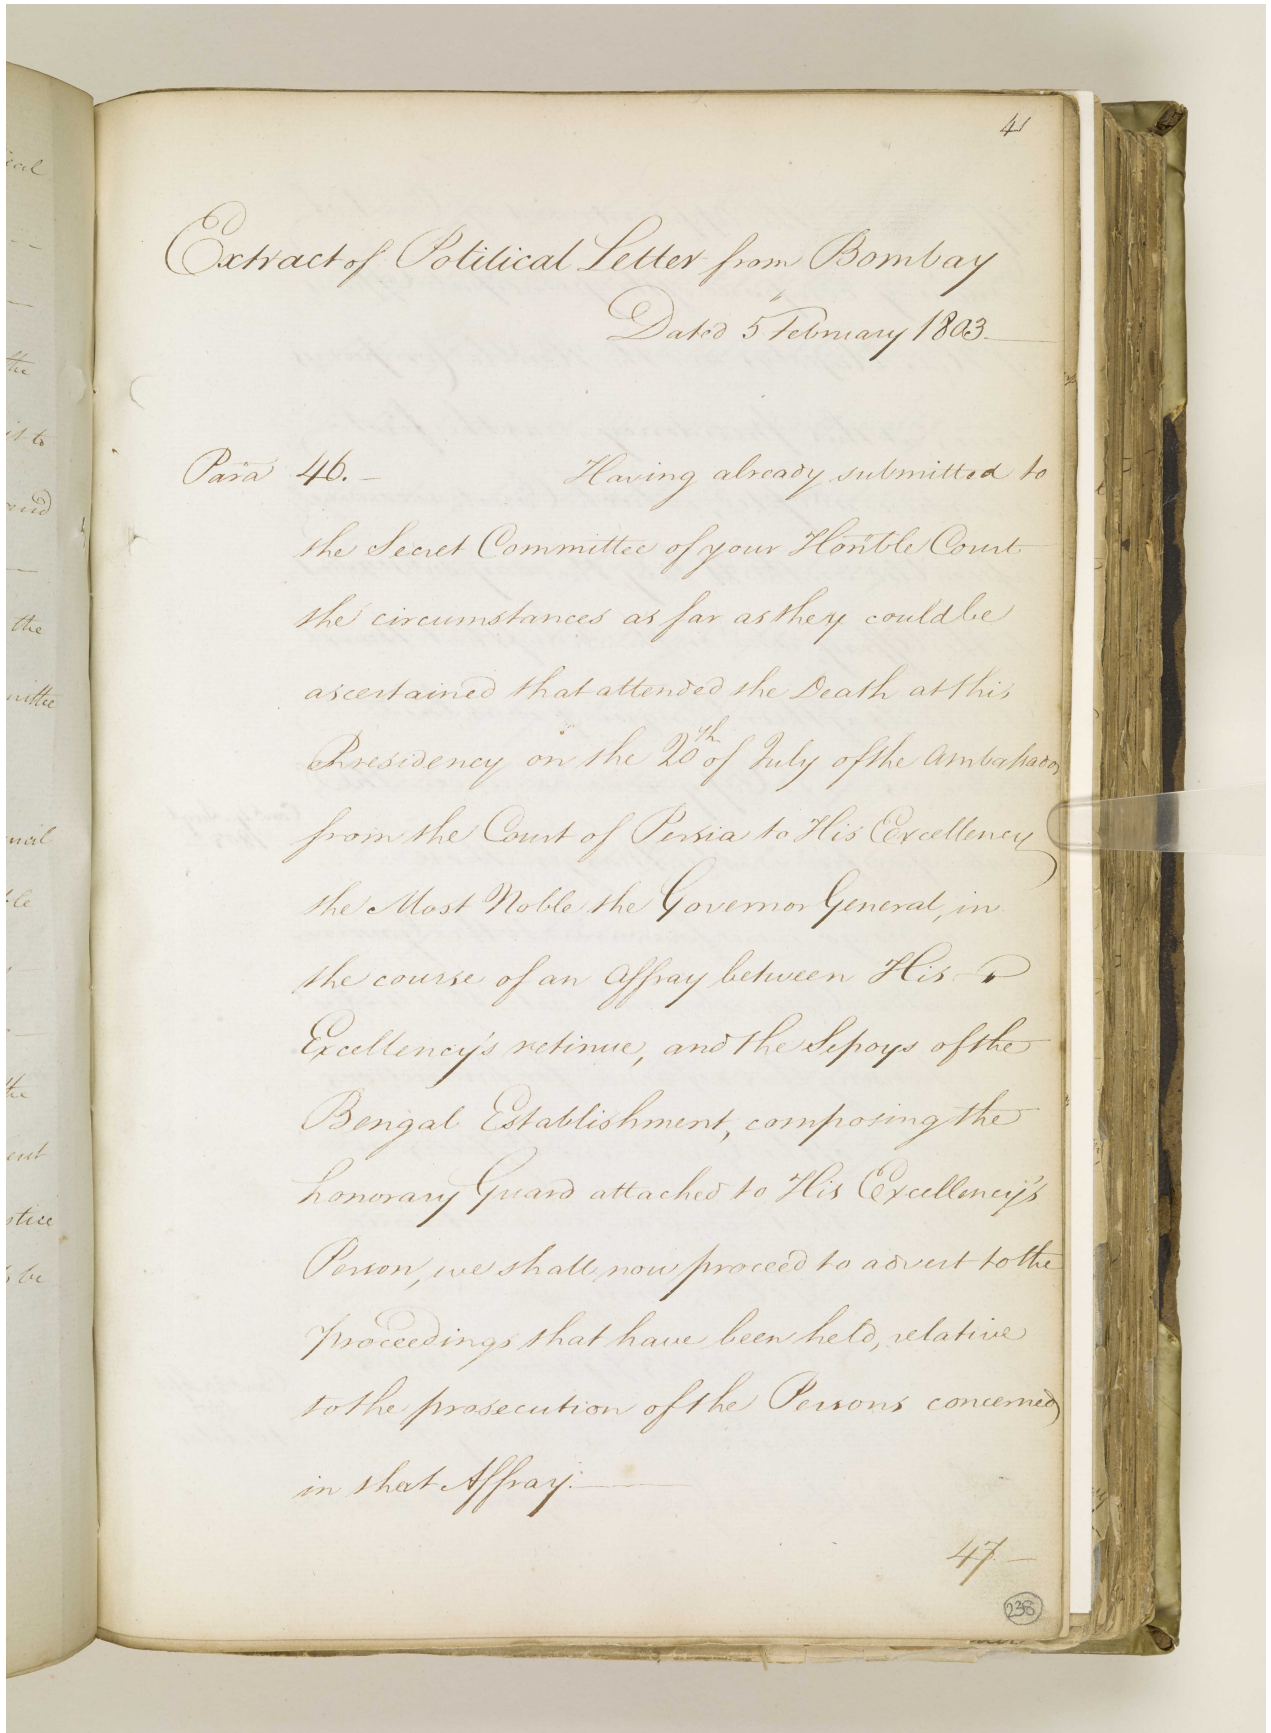 41
Extract of Political Letter from Bombay
Dated 5 February 1803.
Para 46. - Having already submitted to
the Secret Committee of your Hon'ble Court
the circumstances as far as they could be
ascertained that attended the Death at this
Presidency on the 20th of July of the Ambassador
from the Court of Persia to His Excellency
the Most Noble the Governor General, in
the course of an Affray between His
Excellency's retinue, and the Sepoys of the
Bengal Establishment, composing the
honorary Guard attached to His Excellency's
Person, we shall now proceed to advert to the
proceedings that have been held, relative
to the prosecution of the Persons concerned
in that Affray.
47
238
ical
the
is to
and
the
mittee
uncil
the
ent
stice
be